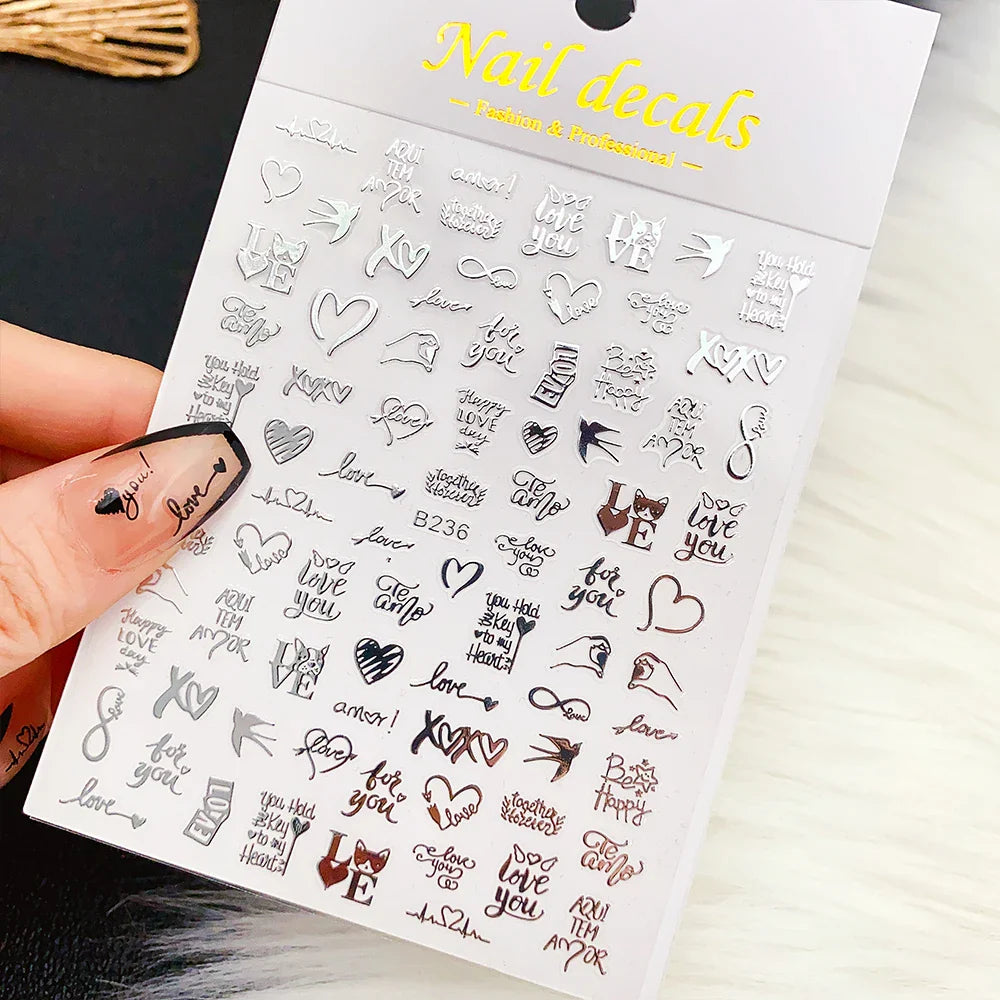 Nail decals
— Fashion & Professional —
AQUI
TEM
AMOR
amor!
together
forever
love
you
LOVE
You Hold
the Key
to my
Heart
LOVE
XO
love
love
love
you
Te
amo
for
you
LOVE
Be
Happy
XOXO
You Hold
the Key
to my
Heart
XOXO
love
Happy
LOVE
day
AQUI
TEM
AMOR
love
love
together
forever
Te
amo
LOVE
love
you
you!
love
B236
love
love
you
for
you
love
love
you
Te
amo
You Hold
the Key
to my
Heart
Happy
LOVE
day
AQUI
TEM
AMOR
LOVE
love
love
love
XO
amor!
XOXO
love
Be
Happy
love
for
you
LOVE
for
you
love
together
forever
Te
amo
You Hold
the Key
to my
Heart
LOVE
love
you
love
you
AQUI
TEM
AMOR